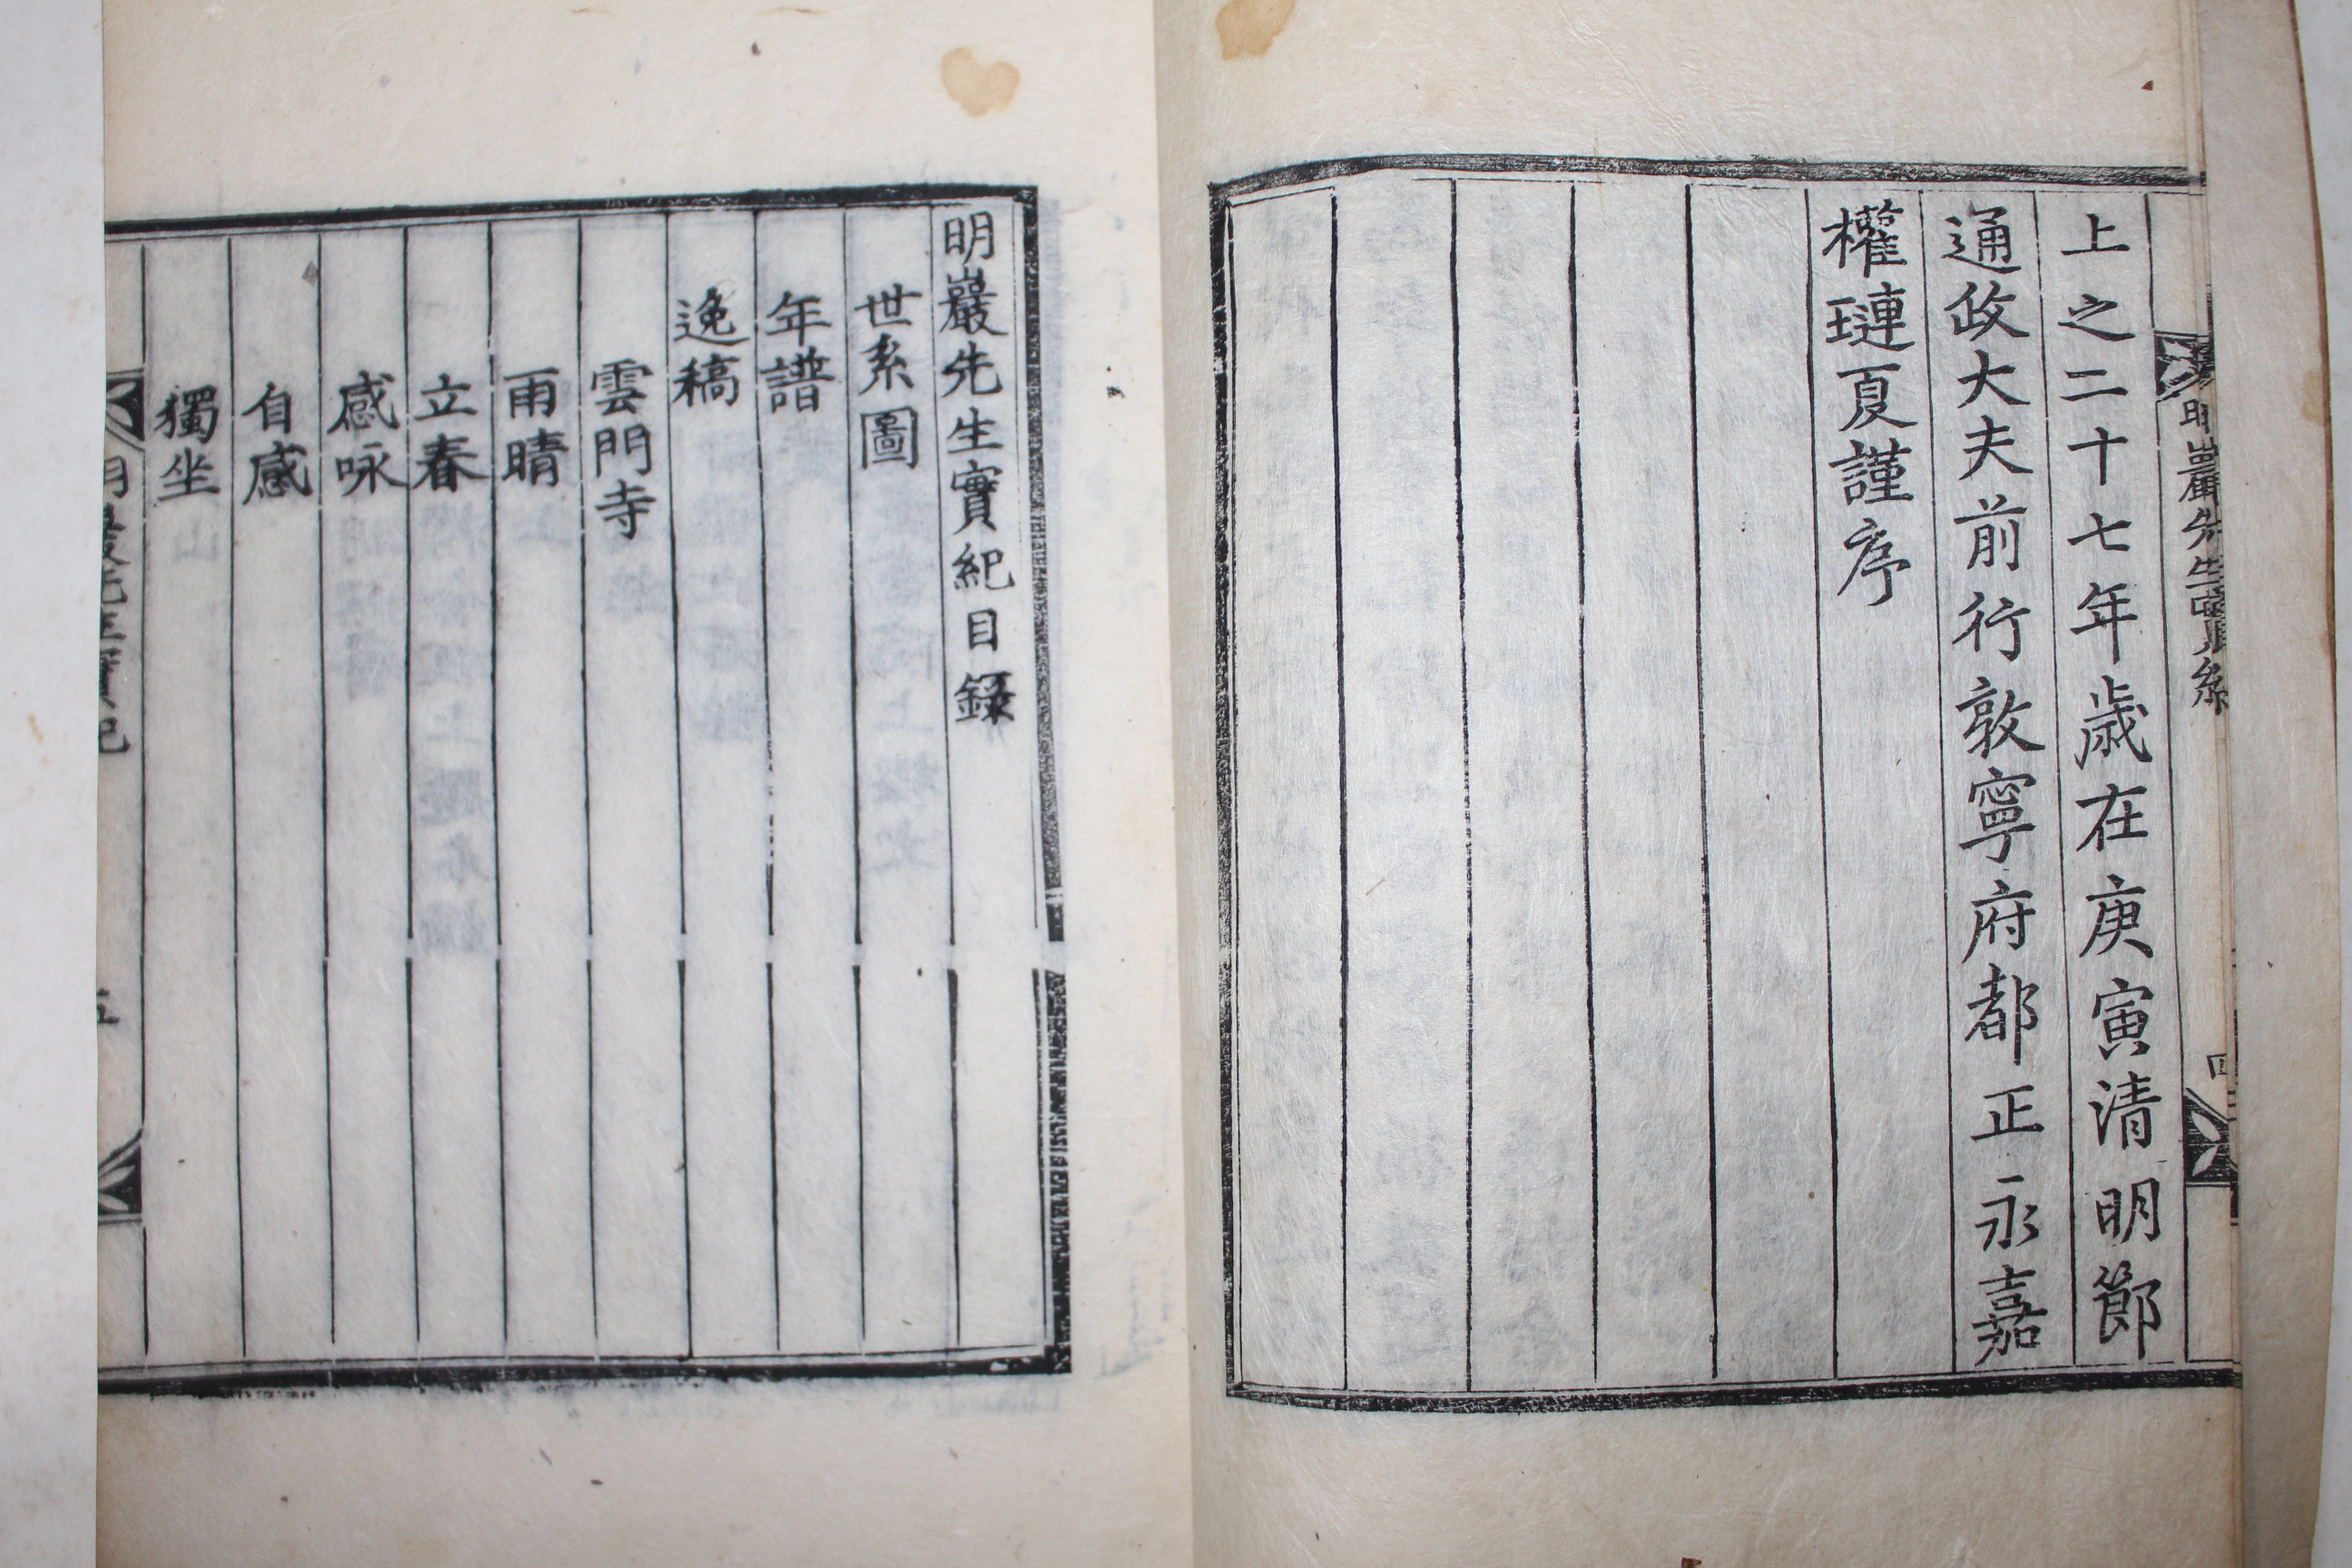 上之二十七年歲在庚寅清明節
通政大夫前行敦寧府都正永嘉
權璉夏謹序
明巖先生實紀
四
明巖先生實紀目錄
世系圖
年譜
逸稿
雲門寺
雨晴
立春
感咏
自感
獨坐
明巖先生實紀
五